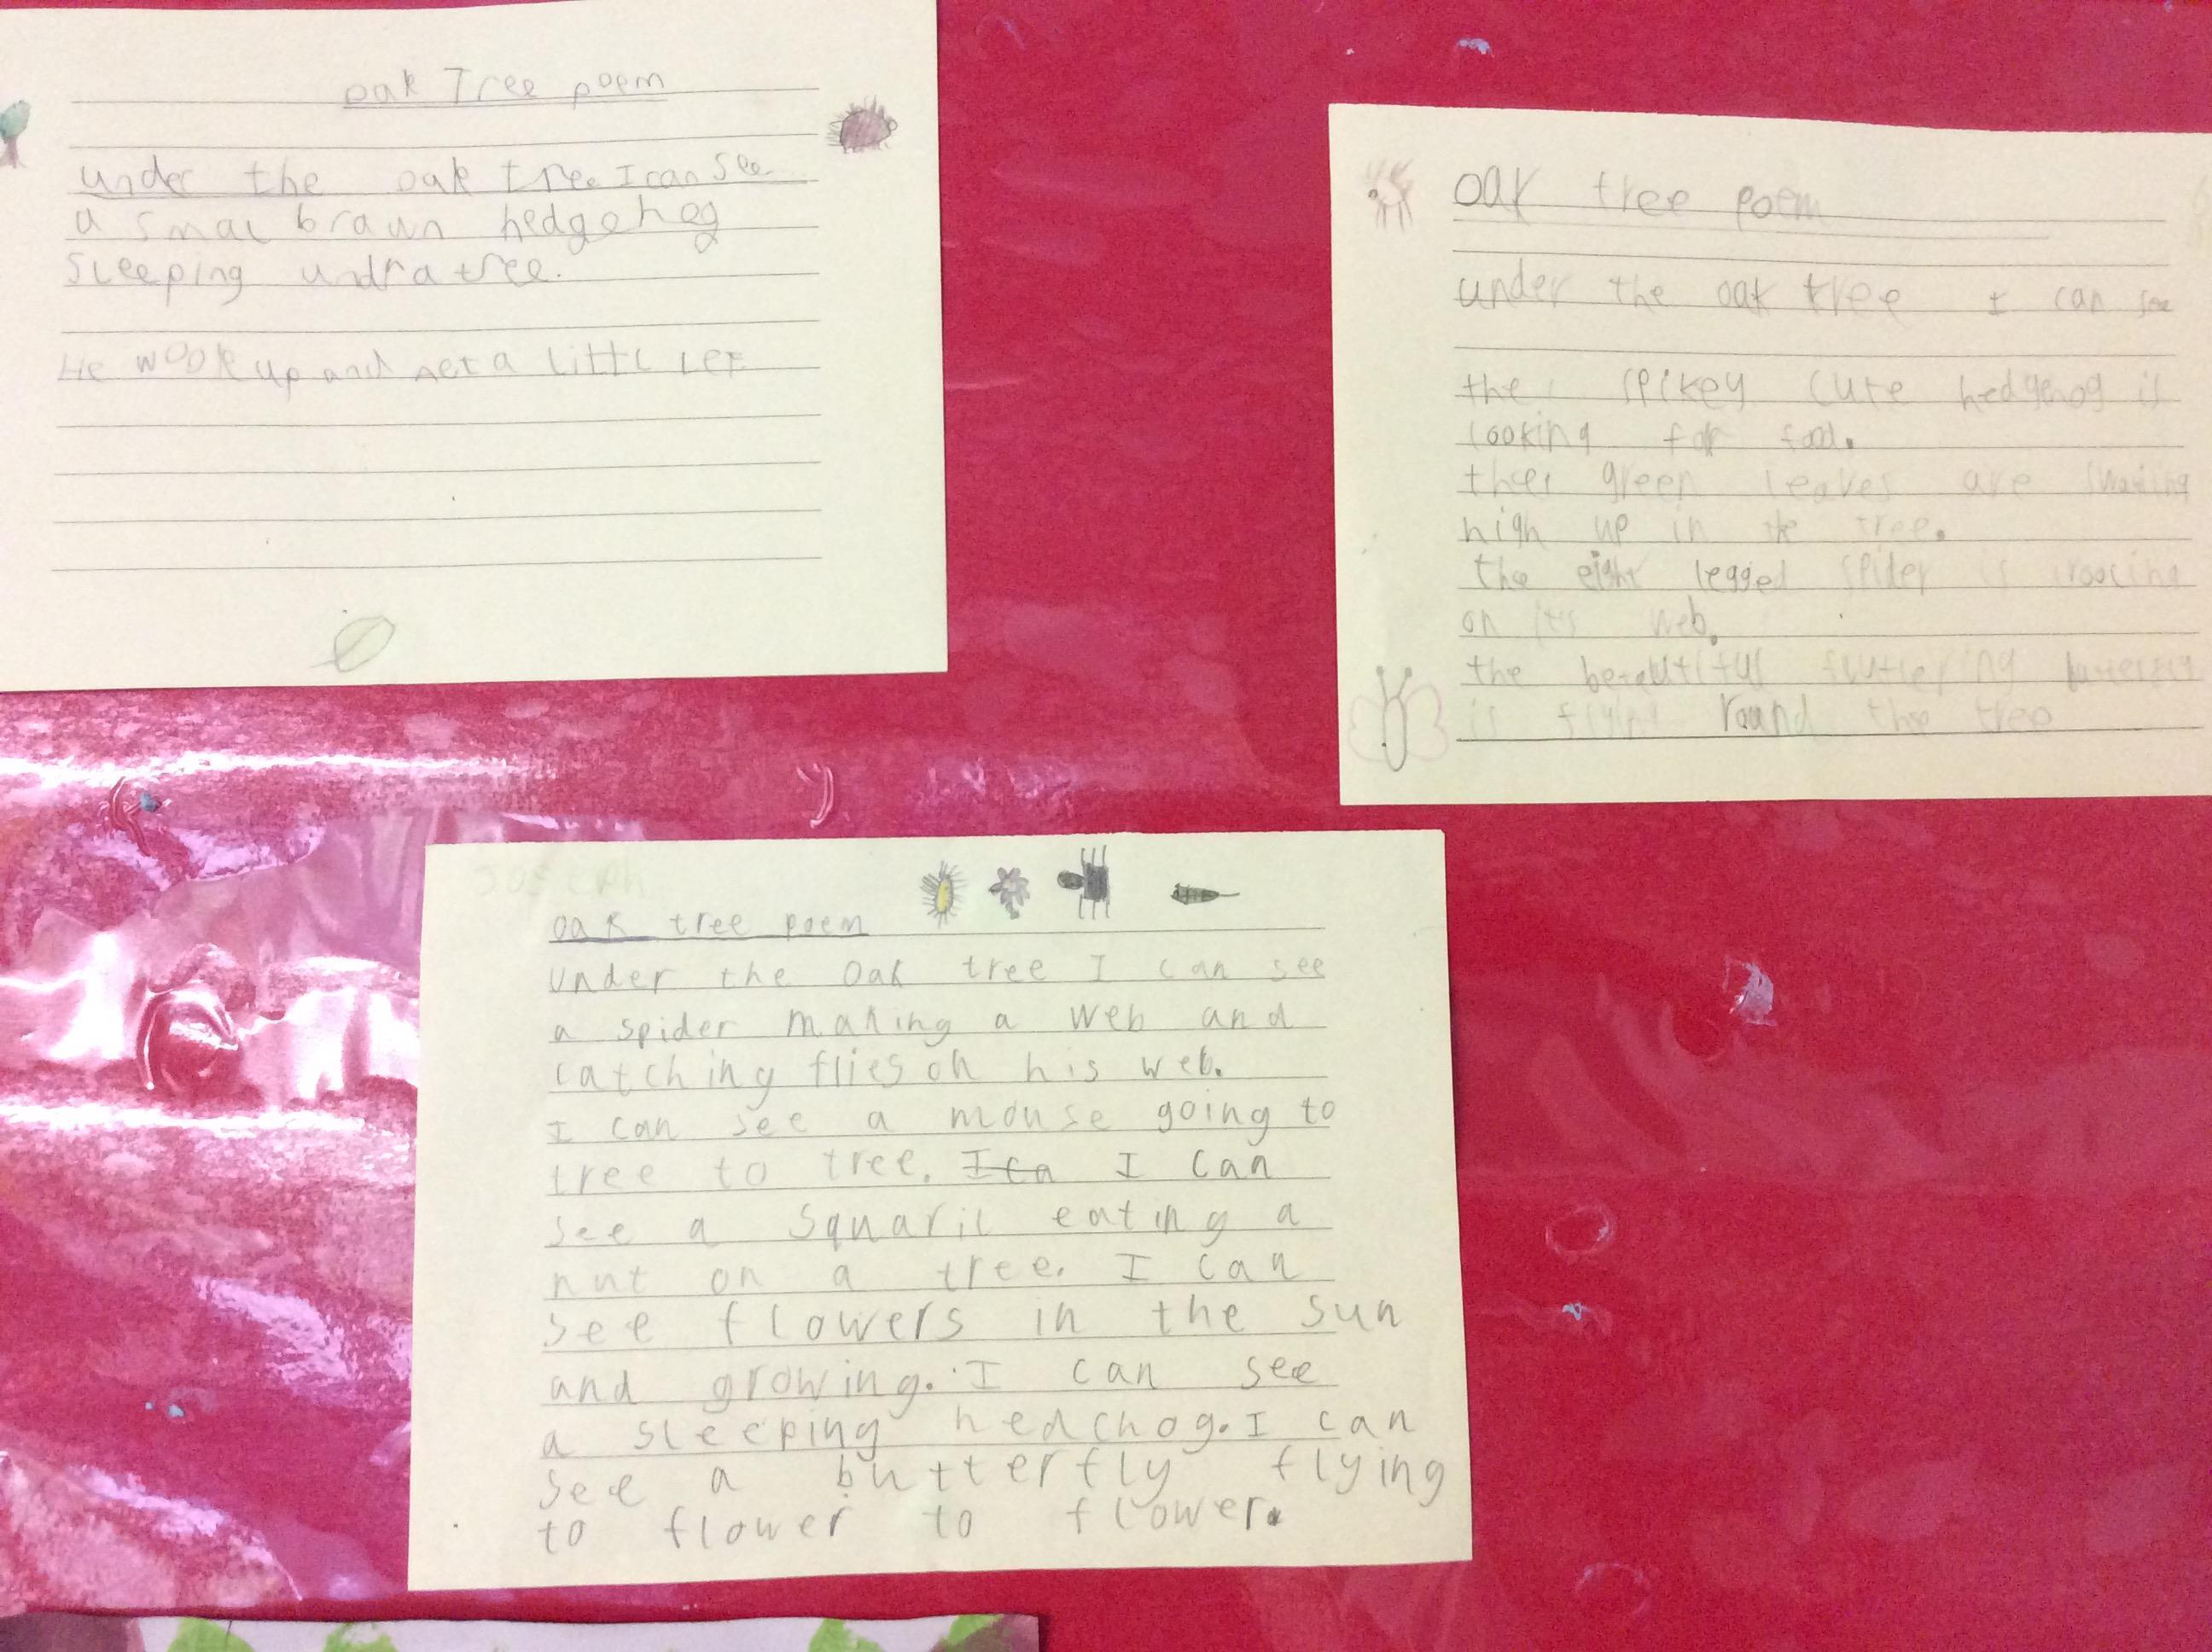 oak Tree poem
under the oak tree I can See
a smal braun hedgehog
Sleeping undra tree.
He wook up and a Littl LeF
oak tree poem
under the oak tree I can see
the spikey cute hedgehog is
looking for food.
green leaves are
high up in the tree.
the eight legged spider is
on it's web.
the fluttering butterfly
is round the tree
JOSEPH
oak tree poem
under the Oak tree I can see
a spider making a web and
catching flies on his web.
I can see a mouse going to
tree to tree. I ca I can
see a squaril eating a
nut on a tree. I can
see flowers in the sun
and growing. I can see
a sleeping hedchog. I can
see a butterfly flying
to flower to flower.